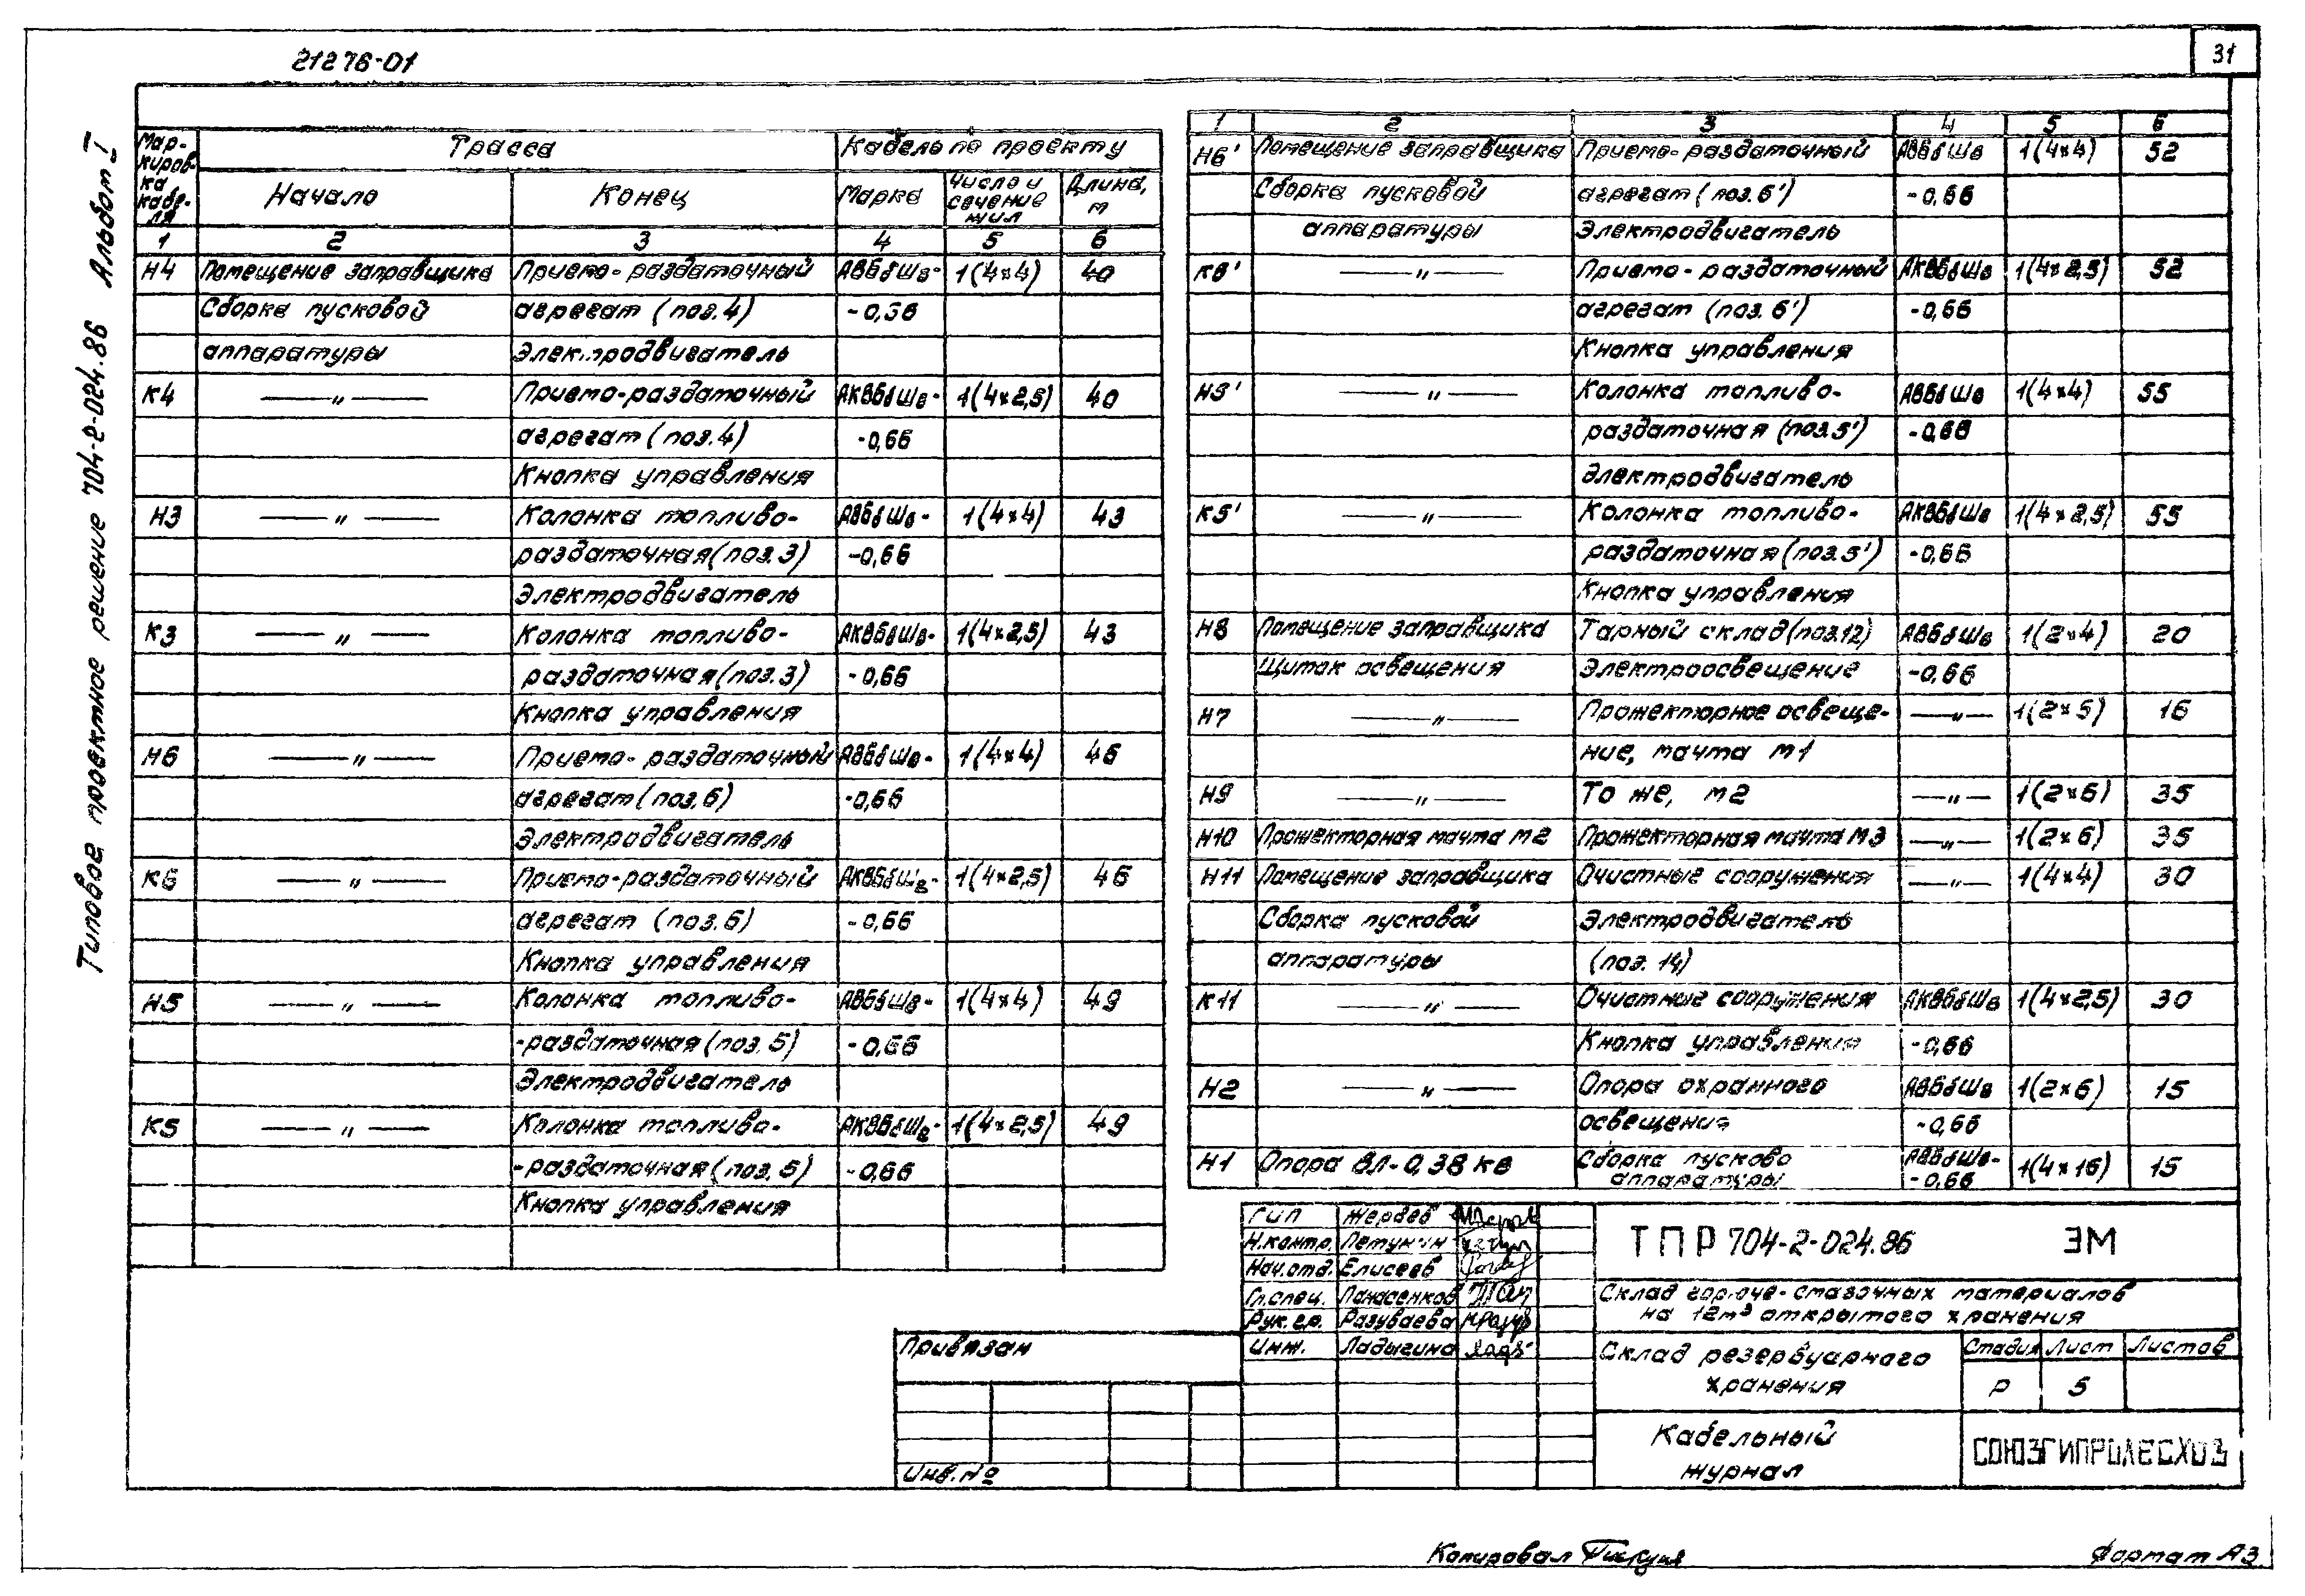 21276-01
31
Типовое проектное решение 704-2-024.86 Альбом I
Мар-
киров-
ка
кабе-
ля
Трасса
Кабель по проекту
Начало
Конец
Марка
Число и
сечение
жил
Длина,
м
1 2 3 4 5 6
Н4 Помещение заправщика Приемо-раздаточный АВБбШв- 1(4×4) 40
Сборка пусковой агрегат (поз.4) -0,66
аппаратуры Электродвигатель
К4 —"— Приемо-раздаточный АКВБбШв- 1(4×2,5) 40
агрегат (поз.4) -0,66
Кнопка управления
Н3 —"— Колонка топливо- АВБбШв- 1(4×4) 43
раздаточная (поз.3) -0,66
Электродвигатель
К3 —"— Колонка топливо- АКВБбШв- 1(4×2,5) 43
раздаточная (поз.3) -0,66
Кнопка управления
Н6 —"— Приемо-раздаточный АВБбШв- 1(4×4) 46
агрегат (поз.6) -0,66
Электродвигатель
К6 —"— Приемо-раздаточный АКВБбШв- 1(4×2,5) 46
агрегат (поз.6) -0,66
Кнопка управления
Н5 —"— Колонка топливо- АВБбШв- 1(4×4) 49
-раздаточная (поз.5) -0,66
Электродвигатель
К5 —"— Колонка топливо- АКВБбШв- 1(4×2,5) 49
-раздаточная (поз.5) -0,66
Кнопка управления
1 2 3 4 5 6
Н6' Помещение заправщика Приемо-раздаточный АВБбШв 1(4×4) 52
Сборка пусковой агрегат (поз.6') -0,66
аппаратуры Электродвигатель
К6' —"— Приемо-раздаточный АКВБбШв 1(4×2,5) 52
агрегат (поз.6') -0,66
Кнопка управления
Н5' —"— Колонка топливо- АВБбШв 1(4×4) 55
раздаточная (поз.5') -0,66
Электродвигатель
К5' —"— Колонка топливо- АКВБбШв 1(4×2,5) 55
раздаточная (поз.5') -0,66
Кнопка управления
Н8 Помещение заправщика Тарный склад (поз.12) АВБбШв 1(2×4) 20
Щиток освещения Электроосвещение -0,66
Н7 —"— Прожекторное освеще- —"— 1(2×6) 16
ние, мачта М1
Н9 —"— То же, М2 —"— 1(2×6) 35
Н10 Прожекторная мачта М2 Прожекторная мачта М3 —"— 1(2×6) 35
Н11 Помещение заправщика Очистные сооружения —"— 1(4×4) 30
Сборка пусковой Электродвигатель
аппаратуры (поз.14)
К11 —"— Очистные сооружения АКВБбШв 1(4×2,5) 30
Кнопка управления -0,66
Н2 —"— Опора охранного АВБбШв 1(2×6) 15
освещения -0,66
Н1 Опора ВЛ-0,38 кв Сборка пусково АВБбШв- 1(4×16) 15
аппаратуры -0,66
ГИП Жеребев
Н.контр. Летунин
Нач.отд. Елисеев
Гл.спец. Панасенков
Рук.гр. Разуваева
Инж. Ладыгина
ТПР 704-2-024.86 ЭМ
Склад горюче-смазочных материалов
на 12м³ открытого хранения
Склад резервуарного
хранения
Стадия Лист Листов
Р 5
Кабельный
журнал
СОЮЗГИПРОЛЕСХОЗ
Привязан
Инв.№
Копировал
Формат А3